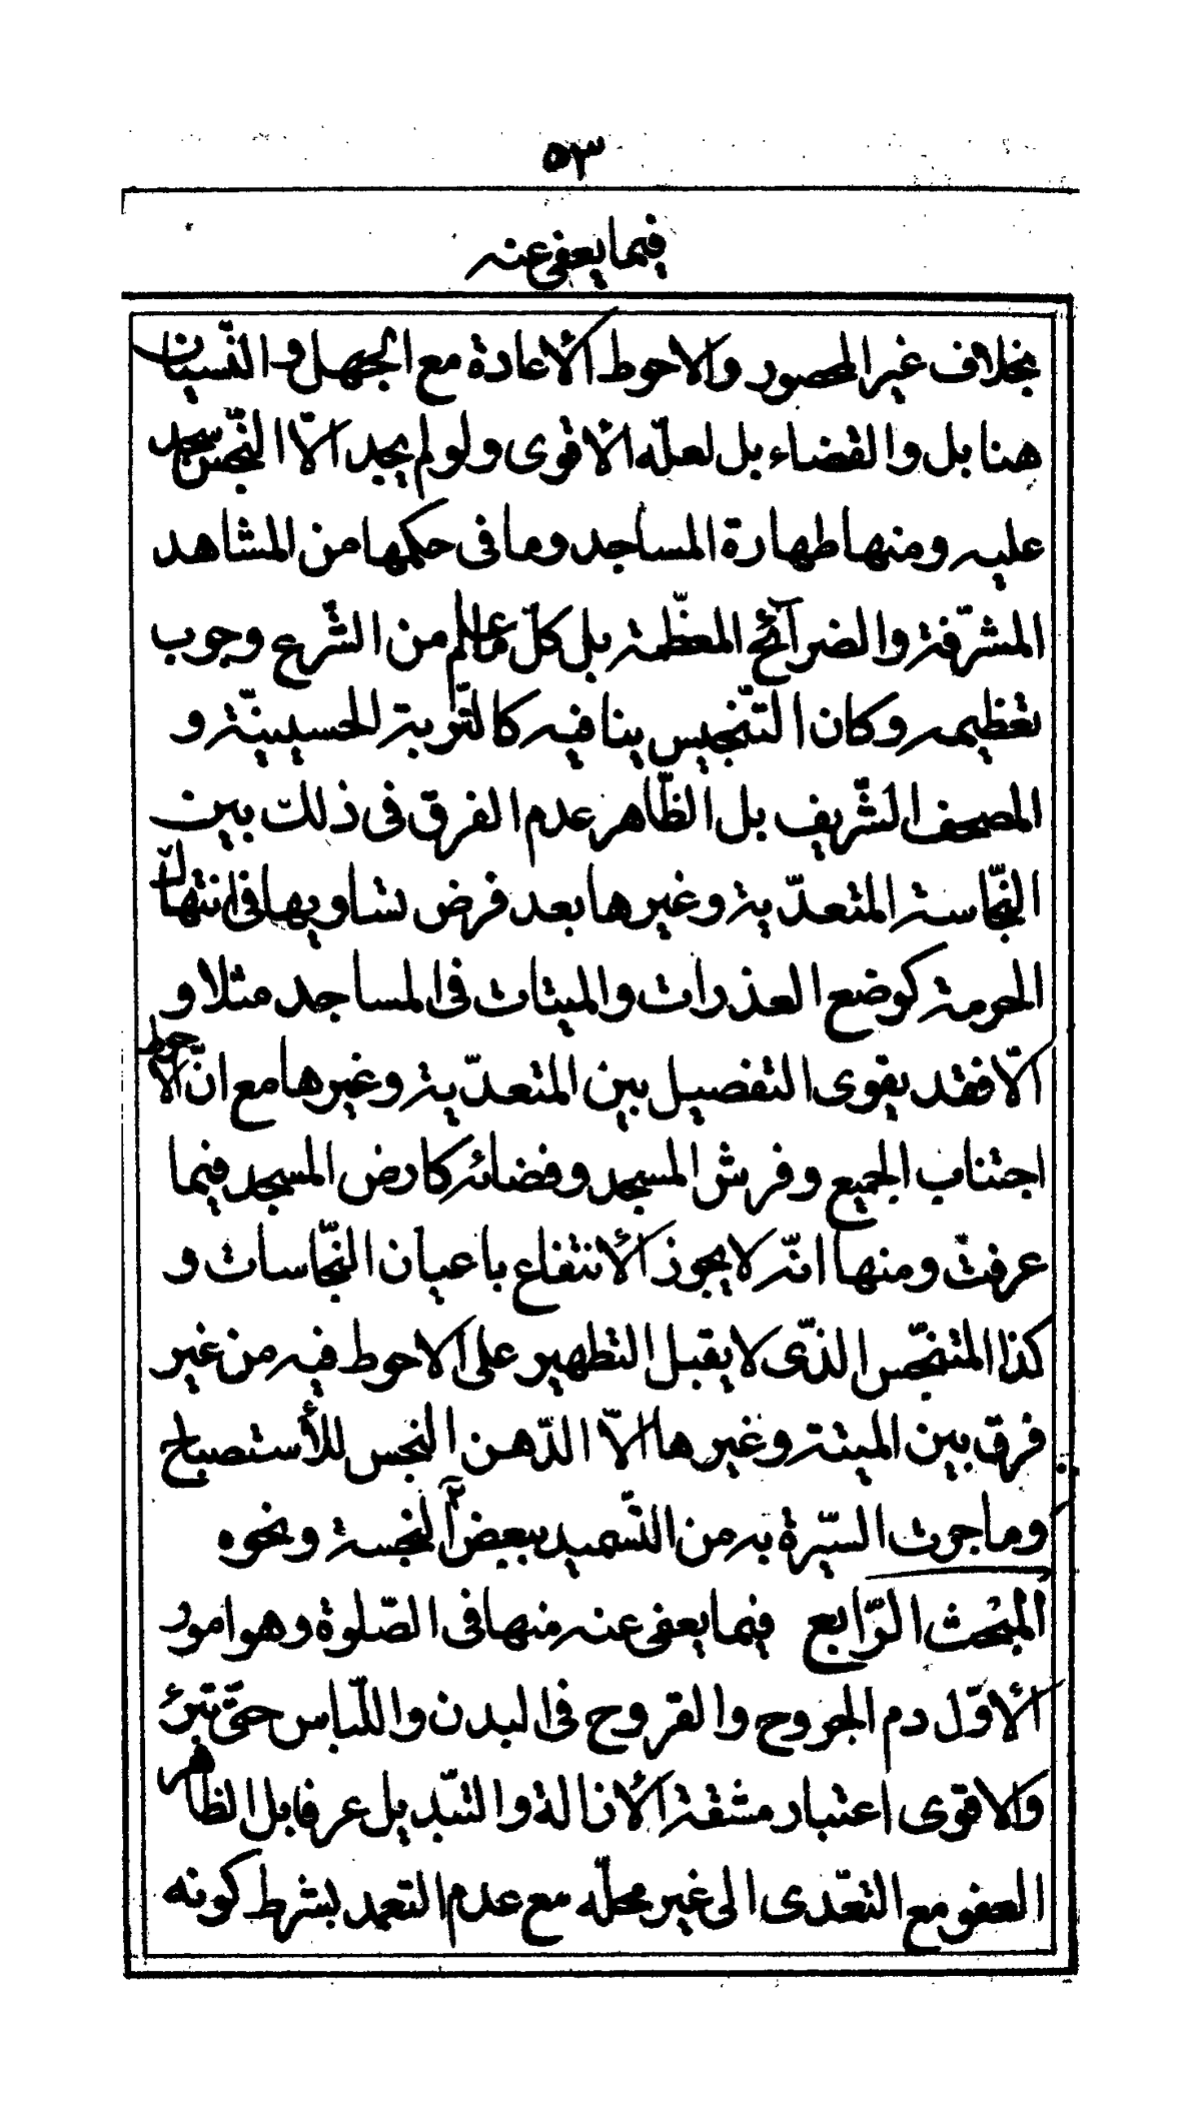 ٥٣
فيما يعفى عنه
بخلاف غير المحصور والاحوط الأعادة مع الجهل والنّسيان
هنا بل والقضاء بل لعلّه الأقوى ولو لم يجد الّا النّجس سجد
عليه ومنها طهارة المساجد وما فى حكمها من المشاهد
المشرّفة والضرآئح المعظّمة بل كلّ ما علم من الشّرع وجوب
تعظيمه وكان التّنجيس ينافيه كالتّربة الحسينيّة و
المصحف الشّريف بل الظّاهر عدم الفرق فى ذلك بين
النّجاسة المتعدّية وغيرها بعد فرض تساويها فى انتهاك
الحرمة كوضع العذرات والميتات فى المساجد مثلا و
الّا فقد يقوى التفصيل بين المتعدّية وغيرها مع انّ الأحوط
اجتناب الجميع وفرش المسجد وفضائه كارض المسجد فيما
عرفت ومنها انّه لا يجوز الأنتفاع باعيان النّجاسات و
كذا المتنجّس الذّى لا يقبل التطهير على الاحوط فيه من غير
فرق بين الميتة وغيرها الّا الدّهن النجس للأستصباح
وما جرت السّيرة به من التّسميد ببعض النجسة ونحوه
المبحث الرّابع فيما يعفى عنه منها فى الصّلوة وهو امور
الأوّل دم الجروح والقروح فى البدن واللّباس حتّى تبرئ
والاقوى اعتبار مشقة الأزالة والتّبديل عرفا بل الظاهر
العفو مع التعّدى الى غير محلّه مع عدم التعمد بشرط كونه